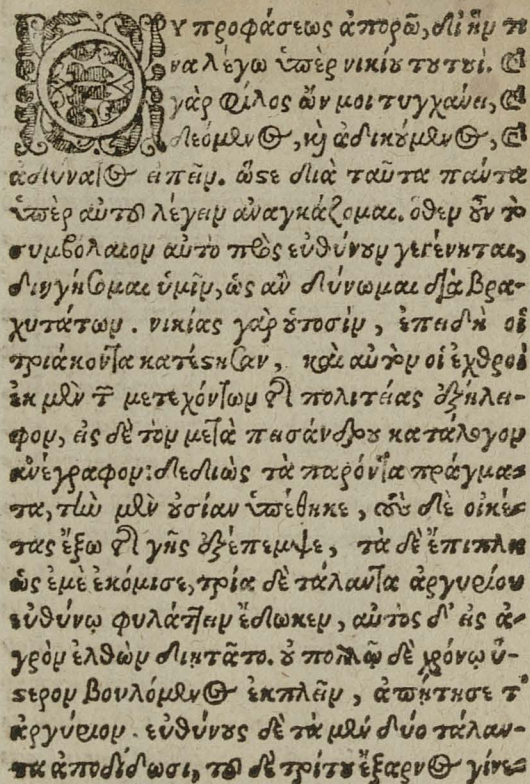 Οὐ προφάσεως ἀπορῶ, δι' ἣν τι-
να λέγω ὑπὲρ νικίου τουτουί. καὶ
γὰρ φίλος ὤν μοι τυγχάνει, καὶ
δεόμενος, καὶ ἀδικούμενος, καὶ
ἀδύνατος εἰπεῖν. ὥστε διὰ ταῦτα πάντα
ὑπὲρ αὐτοῦ λέγειν ἀναγκάζομαι. ὅθεν οὖν τὸ
συμβόλαιον αὐτὸ πρὸς εὐθύνουν γεγένηται,
διηγήσομαι ὑμῖν, ὡς ἂν δύνωμαι διὰ βρα-
χυτάτων. νικίας γὰρ οὑτοσὶν, ἐπειδὴ οἱ
τριάκοντα κατέστησαν, καὶ αὐτὸν οἱ ἐχθροὶ
ἐκ μὲν τῶν μετεχόντων τῆς πολιτείας ἐξήλει-
φον, εἰς δὲ τὸν μετὰ πεισάνδρου κατάλογον
ἀνέγραφον: δεδιὼς τὰ παρόντα πράγμα-
τα, τὴν μὲν οὐσίαν ὑπέθηκε, τοὺς δὲ οἰκέ-
τας ἔξω τῆς γῆς ἐξέπεμψε, τὰ δὲ ἔπιπλα
ὡς ἐμὲ ἐκόμισε, τρία δὲ τάλαντα ἀργυρίου
εὐθύνῳ φυλάττειν ἔδωκεν, αὐτὸς δ' εἰς ἀ-
γρὸν ἐλθὼν διῃτᾶτο. οὐ πολλῷ δὲ χρόνῳ ὕ-
στερον βουλόμενος ἐκπλεῖν, ἀπῄτησε τὸ
ἀργύριον. εὐθύνους δὲ τὰ μὲν δύο τάλαν-
τα ἀποδίδωσι, τοῦ δὲ τρίτου ἔξαρνος γίνε-